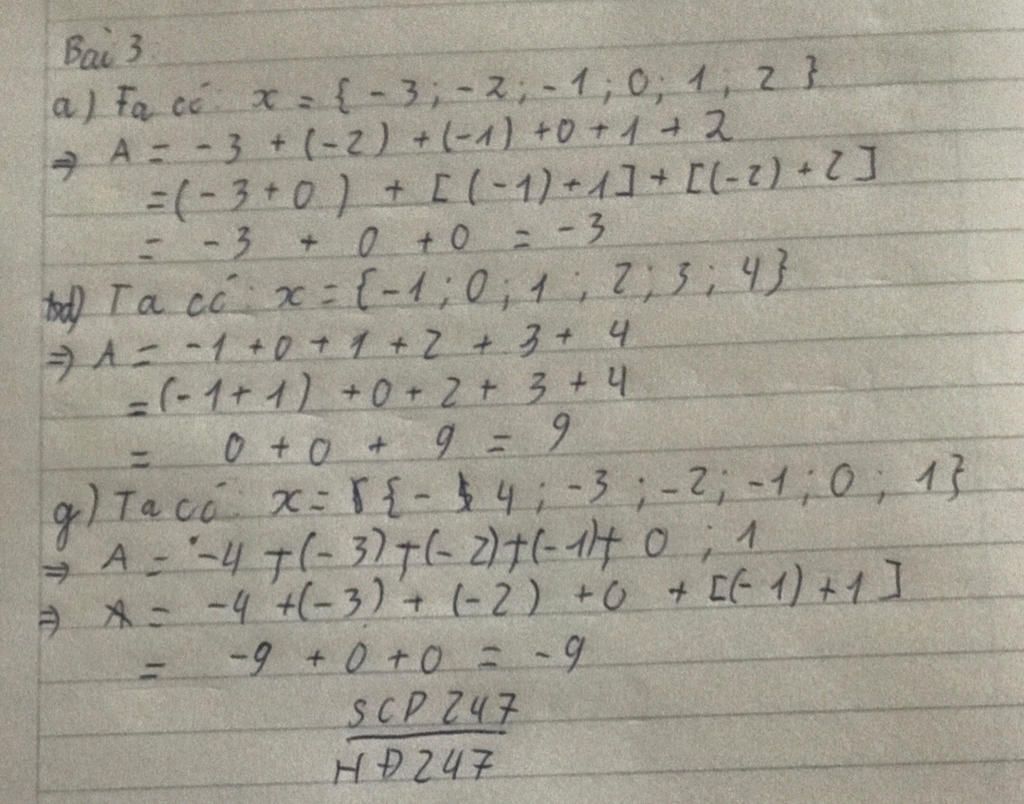 Bài 3
a) Ta có: x = { -3 ; -2 ; -1 ; 0 ; 1 ; 2 }
⇒ A = -3 + (-2) + (-1) + 0 + 1 + 2
= (-3 + 0) + [(-1) + 1] + [(-2) + 2]
= -3 + 0 + 0 = -3
d) Ta có: x = {-1 ; 0 ; 1 ; 2 ; 3 ; 4}
⇒ A = -1 + 0 + 1 + 2 + 3 + 4
= (-1 + 1) + 0 + 2 + 3 + 4
= 0 + 0 + 9 = 9
g) Ta có: x = { -4 ; -3 ; -2 ; -1 ; 0 ; 1}
⇒ A = -4 + (-3) + (-2) + (-1) + 0 ; 1
⇒ A = -4 + (-3) + (-2) + 0 + [(-1) + 1]
= -9 + 0 + 0 = -9
SCP247
HĐ247